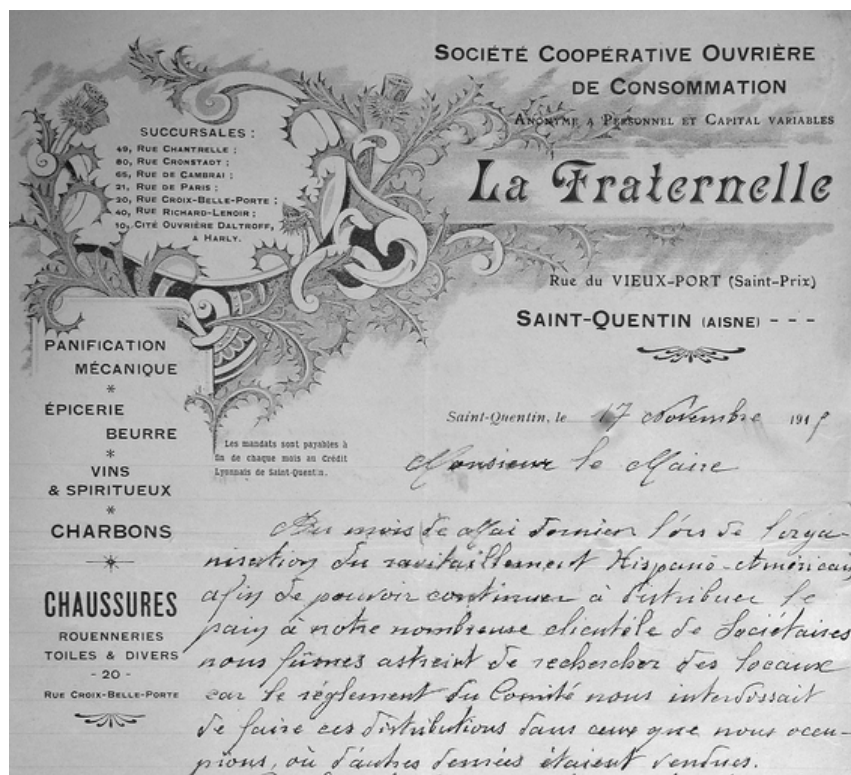 SOCIÉTÉ COOPÉRATIVE OUVRIÈRE
DE CONSOMMATION
ANONYME A PERSONNEL ET CAPITAL VARIABLES
La Fraternelle
Rue du VIEUX-PORT (Saint-Prix)
SAINT-QUENTIN (AISNE) - - -
SUCCURSALES :
49, RUE CHANTRELLE ;
80, RUE CRONSTADT ;
65, RUE DE CAMBRAI ;
21, RUE DE PARIS ;
20, RUE CROIX-BELLE-PORTE ;
40, RUE RICHARD-LENOIR ;
10, CITÉ OUVRIÈRE DALTROFF,
A HARLY.
PANIFICATION
MÉCANIQUE
*
ÉPICERIE
BEURRE
*
VINS
& SPIRITUEUX
*
CHARBONS
CHAUSSURES
ROUENNERIES
TOILES & DIVERS
- 20 -
RUE CROIX-BELLE-PORTE
Les mandats sont payables à
fin de chaque mois au Crédit
Lyonnais de Saint-Quentin.
Saint-Quentin, le 17 Novembre 191
Monsieur le Maire
Au mois de Mai dernier lors de l'orga-
nisation du ravitaillement Hispano-Américain
afin de pouvoir continuer à distribuer le
pain à notre nombreuse clientèle de Sociétaires
nous fûmes astreint de rechercher des locaux
car le réglement du Comité nous interdissait
de faire ces distributions dans ceux que nous occu-
pions, où d'autres denrées étaient vendues.